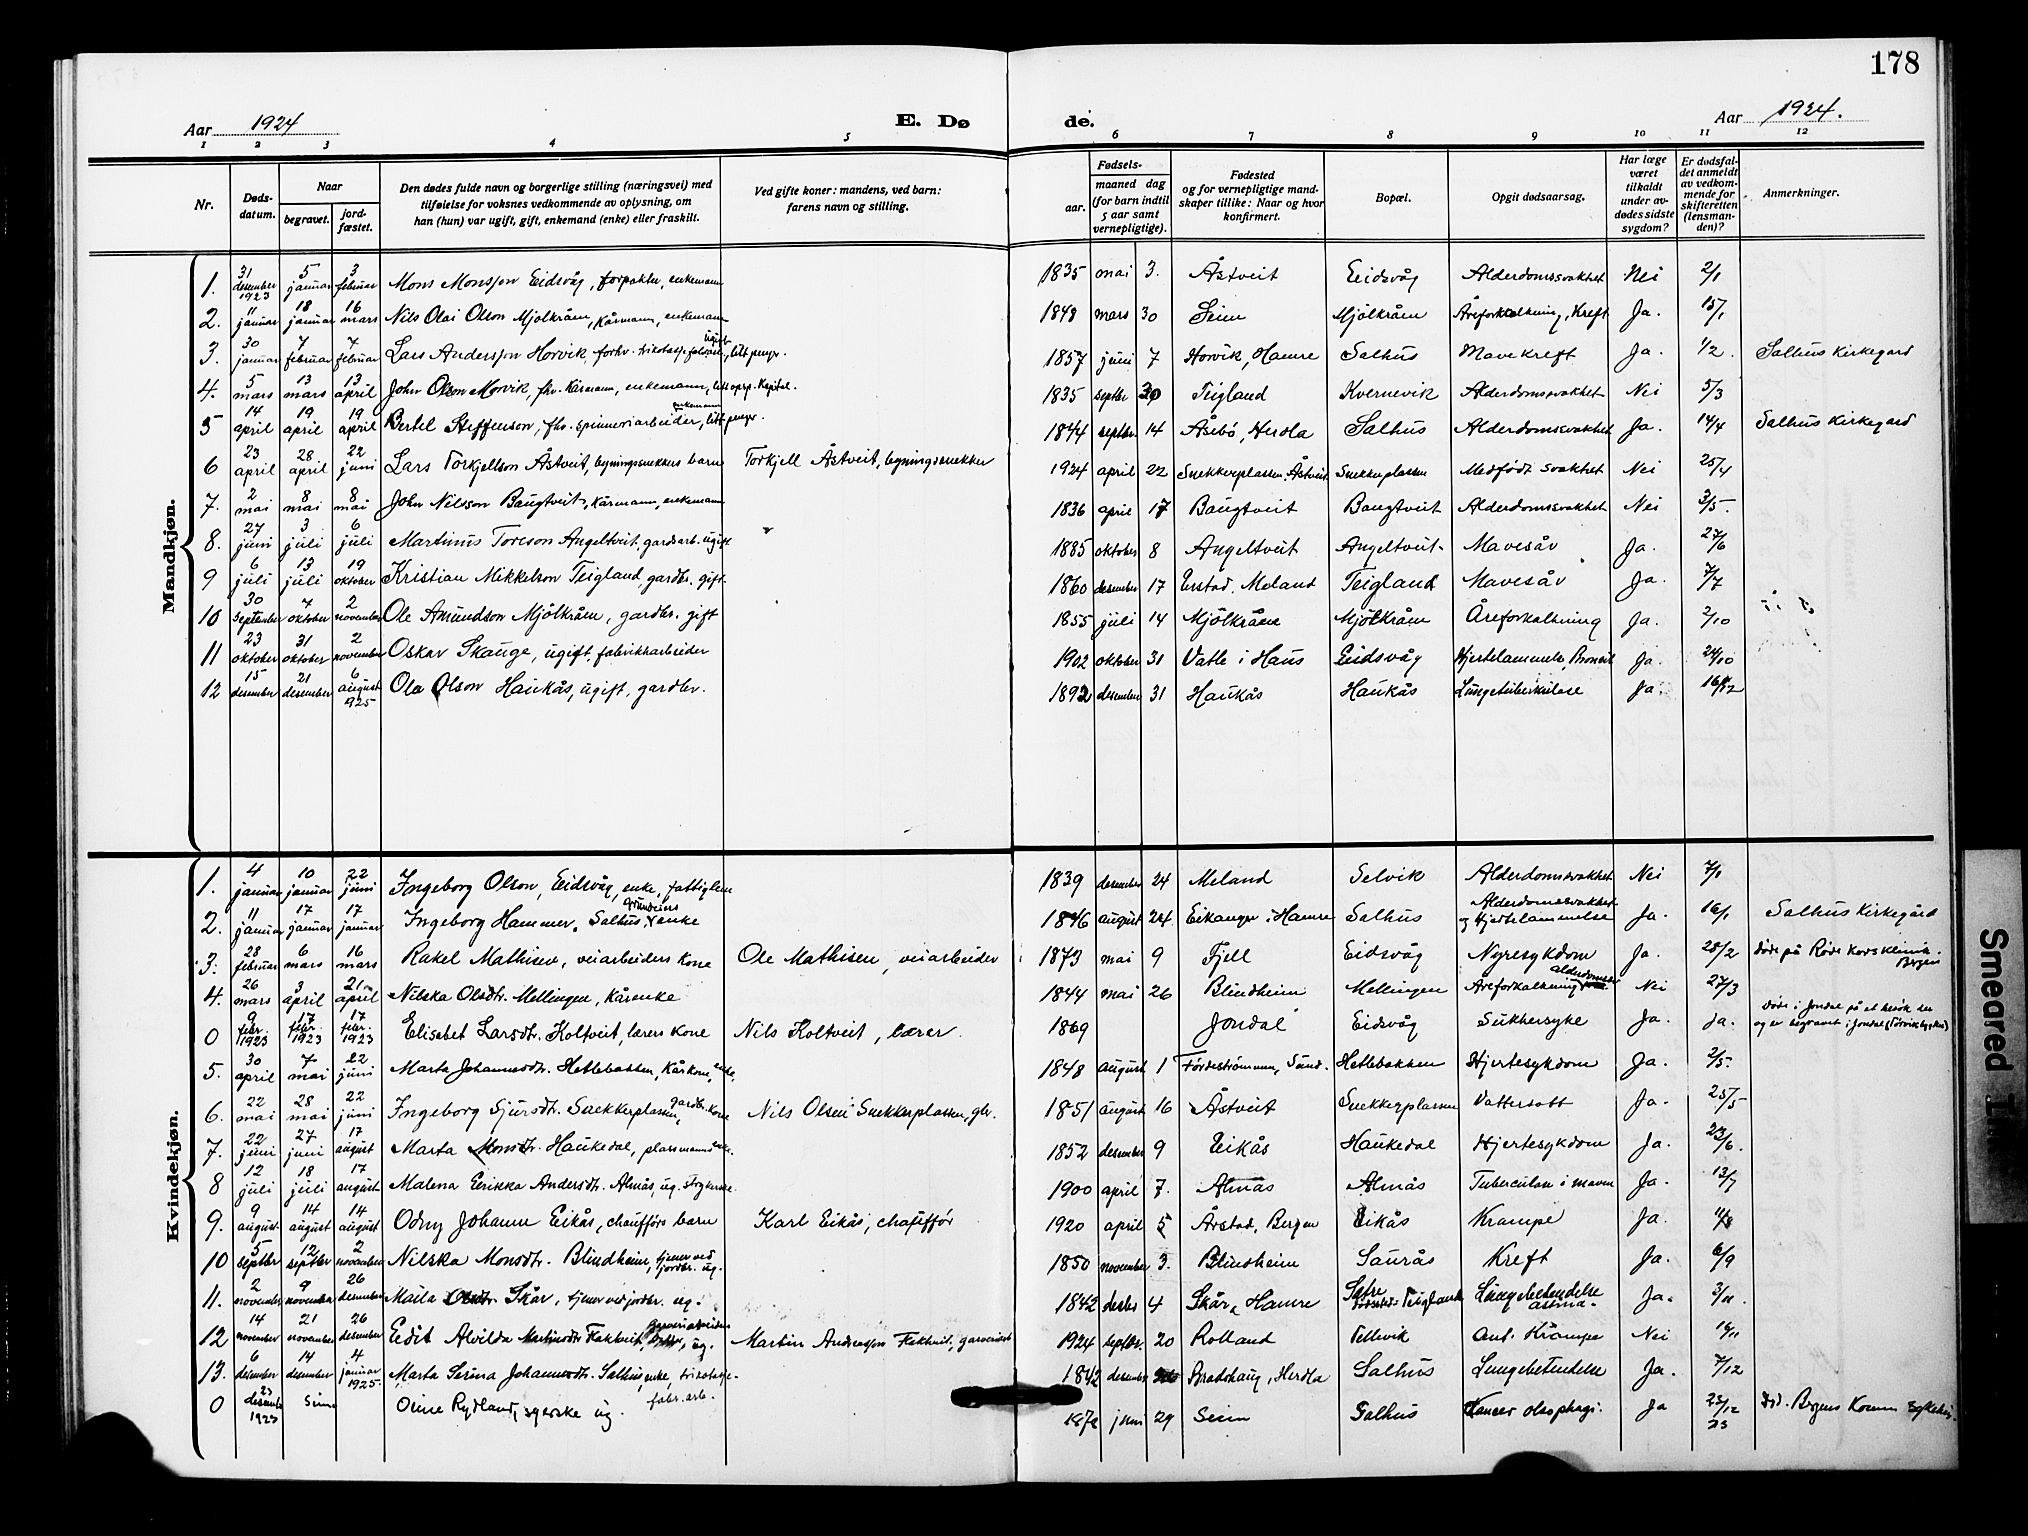 178
Aar 1924
E. Dø
de.
Aar 1924.
1 2 3 4 5 6 7 8 9 10 11 12
Nr.
Døds-
datum.
Naar
begravet.
jord-
fæstet.
Den dødes fulde navn og borgerlige stilling (næringsvei) med
tilføielse for voksnes vedkommende av oplysning, om
han (hun) var ugift, gift, enkemand (enke) eller fraskilt.
Ved gifte koner: mandens, ved barn:
farens navn og stilling.
Fødsels-
aar.
maaned dag
(for barn indtil
5 aar samt
vernepligtige).
Fødested
og for vernepligtige mand-
skaper tillike: Naar og hvor
konfirmert.
Bopæl.
Opgit dødsaarsag.
Har læge
været
tilkaldt
under av-
dødes sidste
sygdom?
Er dødsfal-
det anmeldt
av vedkom-
mende for
skifteretten
(lensman-
den)?
Anmerkninger.
Mandkjøn.
1. 31 desember 1923 5 januar 3 februar Mons Monsson Eidsvåg, forpakter, enkemann 1835 mai 3. Åstveit Eidsvåg Alderdomssvakhet Nei 2/1
2. 11 januar 18 januar 16 mars Nils Olai Olson Mjølkråen, kårmann, enkemann 1848 mars 30 Seim Mjølkråen Åreforkalkning, Kreft Ja. 15/1
3. 30 januar 7 februar 7 februar Lars Andersson Horvik, forhv. trikotasje ugift, litt penger. 1857 juni 7 Horvik, Hamre Salhus Mavekreft Ja. 1/2. Salhus Kirkegard
4. 5 mars 13 mars 13 april John Olson Morvik, fhv. kårmann, enkemann, litt opsp. kapital. 1835 septbr 30 Teigland Kvernevik Alderdomssvakhet Nei 5/3
5 14 april 19 april 19 april Bertel Steffenson, fhv. spinneriarbeider, enkemann litt penger. 1844 septbr. 14 Åsebø, Herdla Salhus Alderdomssvakhet Ja. 14/4 Salhus Kirkegard
6 23 april 28 april 22 juni Lars Torkjellson Åstveit, bygningssnekkers barn Torkjell Åstveit, bygningssnekker 1924 april 22 Snekkerplassen, Åstveit Snekkerplassen Medfødt svakhet Nei 25/4
7. 2 mai 8 mai 8 mai John Nilsson Baugtveit, kårmann, enkemann 1836 april 17 Baugtveit Baugtveit Alderdomssvakhet Nei 3/5.
8. 27 juni 3 juli 6 juli Martinus Toreson Angeltveit, gardsarb. ugift 1885 oktober 8 Angeltveit Angeltveit Mavesår Ja. 27/6
9 6 juli 13 juli 19 oktober Kristian Mikkelson Teigland, gardbr. gift. 1860 desember 17 Erstad, Meland Teigland Mavesår Ja. 7/7
10 30 september 7 oktober 2 november Ole Amundson Mjølkråen, gardbr. gift 1855 juli 14 Mjølkråen Mjølkråen Åreforkalkning Ja. 2/10
11 23 oktober 31 oktober 2 november Oskar Skauge, ugift, fabrikkarbeider 1902 oktober 31 Vatle i Haus Eidsvåg Hjertelammelse, Ja. 24/10
12 15 desember 21 desember 6 august 1925 Ola Olson Haukås, ugift, gardbr. 1892 desember 31 Haukås Haukås Lungetuberkulose Ja. 16/12
Kvindekjøn.
1. 4 januar 10 januar 22 juni Ingeborg Olson, Eidsvåg, enke, fattiglem 1839 desember 24 Meland Selvik Alderdomssvakhet Nei 7/1
2. 11 januar 17 januar 17 januar Ingeborg Hammer, Salhus, grunneiers enke 1846 august 24 Eikanger i Hamre Salhus Alderdomssvakhet og Hjertelammelse Ja. 16/1 Salhus Kirkegård
3. 28 februar 6 mars 16 mars Rakel Mathisen, veiarbeiders kone Ole Mathisen, veiarbeider 1873 mai 9 Fjell Eidsvåg Nyresykdom Ja. 28/2 døde på Røde Kors klinik. Bergen
4. 26 mars 3 april 21 april Nilska Olsdtr. Mellingen, kårenke 1844 mai 26 Blindheim Mellingen Åreforkalkning Nei 27/3
0 9 febr. 1923 17 febr. 1923 17 febr. 1923 Elisabet Larsdtr. Koltveit, lærers kone Nils Koltveit, lærer. 1869 Jondal Eidsvåg Sukkersyke Ja. Ja. døde i Jondal på et besøk der og er begravet i Jondal
5. 30 april 7 mai 22 juni Marta Johannesdtr. Hetlebakken, kårkone, enke. 1848 august 1 Førdestrømmen, Sund. Hetlebakken Hjertesykdom Ja. 2/5.
6. 22 mai 28 mai 22 juni Ingeborg Sjursdtr. Snekkerplassen, gardbr. kone Nils Olsen Snekkerplassen, gbr. 1851 august 16 Åstveit Snekkerplassen Vattersott Ja. 25/5
7. 22 juni 27 juni 17 august Marta Monsdtr. Haukedal, plassmanns enke. 1852 desember 9 Eikås Haukedal Hjertesykdom Ja. 23/6.
8 12 juli 18 juli 17 august Malena Eerikka Andersdtr. Almås, ug. strykerske. 1900 april 7. Almås Almås Tuberculose i maven Ja. 13/7
9. 9 august 14 august 14 august Odny Johanne Eikås, chaufførs barn Karl Eikås, chauffør 1920 april 5 Årstad, Bergen Eikås Krampe Ja. 11/8
10 5 septbr 12 septbr 2 november Nilska Monsdtr. Blindheim, tjener ved jordbr. ug. 1850 november 3. Blindheim Saurås Kreft Ja. 6/9
11. 2 november 9 november 26 desember Maila Skår, tjener ved jordbr. ug. 1842 desbr 4 Skår, Hamre Teigland Lungebetendelse astma. Ja. 3/11.
12 14 november 21 november 26 desember Eedit Alvilda Flaktveit, ug. Martin Andreasson Flaktveit, garveriarb. 1924 septbr. 20 Rolland Tellevik Ant. Krampe Nei 16/11
13. 6 desember 14 desember 4 januar 1925. Marta Serina Johannesdtr. Salhus, enke, trikotasje- fabr. arb. 1842 desember Bratshaug, Herdla Salhus Lungebetendelse Ja. 7/12
0 23 desemb 1923 Seim Oline Rydland, syerske ug. 1872 juni 29 Seim Salhus Cancer oesophagi. Ja 23/12 23 Død. Bergens Komm Sykehus.
Smeared